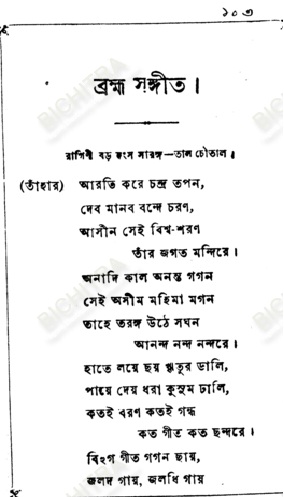 ১০৩
ব্রহ্ম সঙ্গীত।
রাগিণী বড় হংস সারঙ্গ—তাল চৌতাল।
(তাঁহার) আরতি করে চন্দ্র তপন,
দেব মানব বন্দে চরণ,
আসীন সেই বিশ্ব-শরণ
তাঁর জগত মন্দিরে।
অনাদি কাল অনন্ত গগন
সেই অসীম মহিমা মগন
তাহে তরঙ্গ উঠে সঘন
আনন্দ নন্দ নন্দরে।
হাতে লয়ে ছয় ঋতুর ডালি,
পায়ে দেয় ধরা কুসুম ঢালি,
কতই বরণ কতই গন্ধ
কত গীত কত ছন্দরে।
বিহগ গীত গগন ছায়,
জলদ গায়, জলধি গায়
BICHITRA
BICHITRA
BICHITRA
BICHITRA